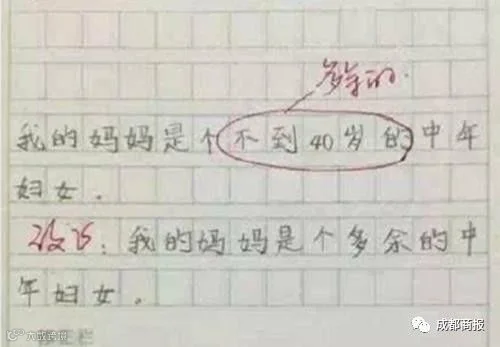 多余的.
我的妈妈是个不到40岁的中年
妇女.
改正:我的妈妈是个多余的中
年妇女.
成都商报